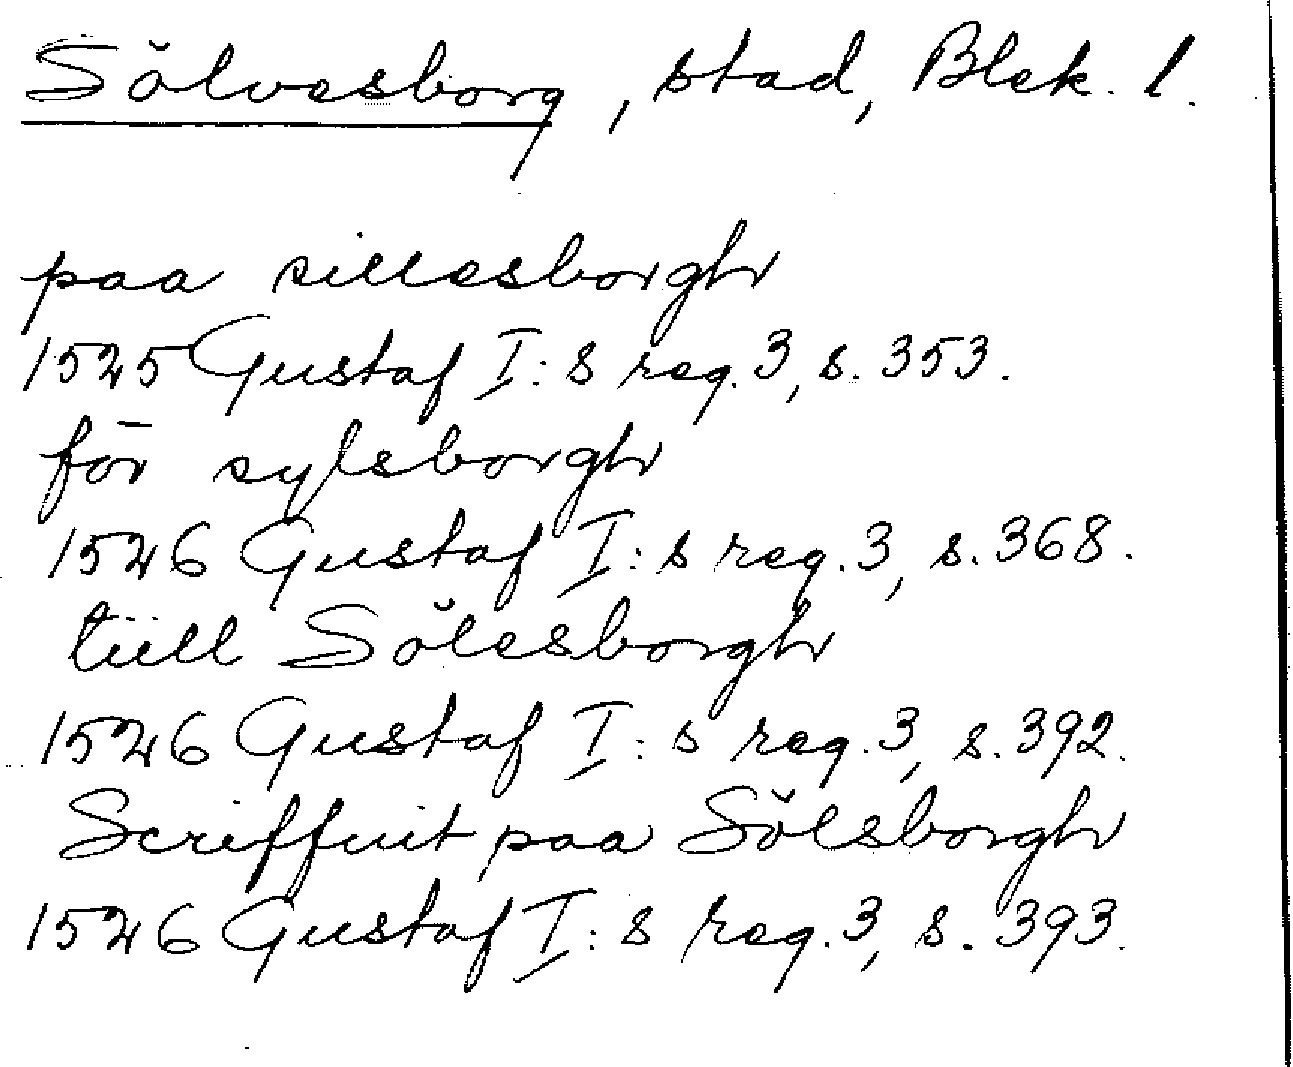 Sölvesborg, stad, Blek. l.
paa sillesborgh
1525 Gustaf I:s reg. 3, s. 353.
för sylsborgh
1526 Gustaf I:s reg. 3, s. 368.
tiill Sölesborgh
1526 Gustaf I:s reg. 3, s. 392.
Scriffuit paa Sölsborgh
1526 Gustaf I:s reg. 3, s. 393.